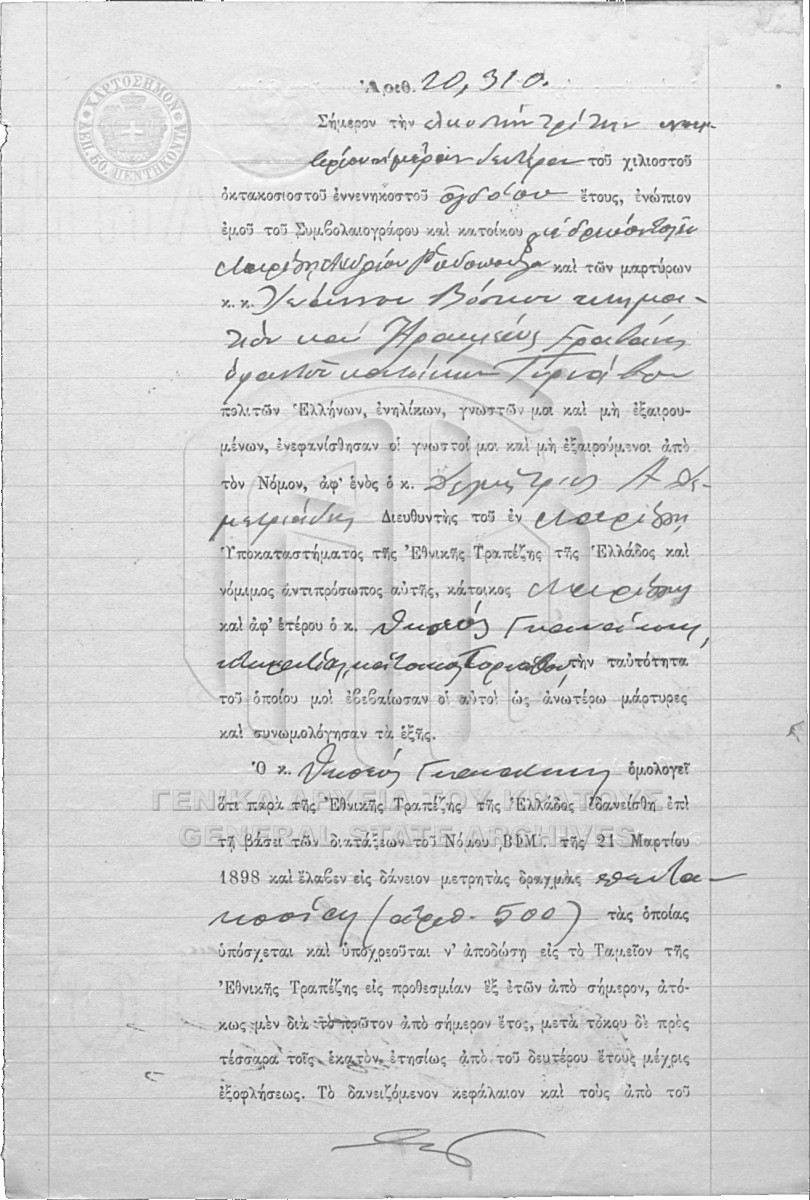 ΧΑΡΤΟΣΗΜΟΝ
ΛΕΠ. 50. ΠΕΝΤΗΚΟΝΤΑ
Ἀριθ. 20,310.
Σήμερον τὴν εἰκοστὴν τρίτην
ἡμέραν Δευτέραν τοῦ χιλιοστοῦ
ὀκτακοσιοστοῦ ἐννενηκοστοῦ ὀγδόου ἔτους, ἐνώπιον
ἐμοῦ τοῦ Συμβολαιογράφου καὶ κατοίκου
Λαρίσης Ἀνδρέου Ροδοπούλου καὶ τῶν μαρτύρων
κ. κ. Ἰωάννου κτημα-
τίου καὶ Ἡρακλέους
κατοίκων Τυρνάβου
πολιτῶν Ἑλλήνων, ἐνηλίκων, γνωστῶν μοι καὶ μὴ ἐξαιρου-
μένων, ἐνεφανίσθησαν οἱ γνωστοί μοι καὶ μὴ ἐξαιρούμενοι ἀπὸ
τὸν Νόμον, ἀφ’ ἑνὸς ὁ κ. Δημήτριος Α Δη-
μητριάδης Διευθυντὴς τοῦ ἐν Λαρίσῃ
Ὑποκαταστήματος τῆς Ἐθνικῆς Τραπέζης τῆς Ἑλλάδος καὶ
νόμιμος ἀντιπρόσωπος αὐτῆς, κάτοικος Λαρίσης
καὶ ἀφ’ ἑτέρου ὁ κ. Θησεὺς
κάτοικος Τυρνάβου, τὴν ταὐτότητα
τοῦ ὁποίου μοὶ ἐβεβαίωσαν οἱ αὐτοὶ ὡς ἀνωτέρω μάρτυρες
καὶ συνωμολόγησαν τὰ ἑξῆς.
Ὁ κ. Θησεὺς ὁμολογεῖ
ΓΕΝΙΚΑ ΑΡΧΕΙΑ ΤΟΥ ΚΡΑΤΟΥΣ
ὅτι παρὰ τῆς Ἐθνικῆς Τραπέζης τῆς Ἑλλάδος ἐδανείσθη ἐπὶ
GENERAL STATE ARCHIVES
τῇ βάσει τῶν διατάξεων τοῦ Νόμου ͵ΒΦΜ΄. τῆς 21 Μαρτίου
1898 καὶ ἔλαβεν εἰς δάνειον μετρητὰς δραχμὰς πεντα-
κοσίας (ἀριθ. 500) τὰς ὁποίας
ὑπόσχεται καὶ ὑποχρεοῦται ν’ ἀποδώσῃ εἰς τὸ Ταμεῖον τῆς
Ἐθνικῆς Τραπέζης εἰς προθεσμίαν ἓξ ἐτῶν ἀπὸ σήμερον, ἀτό-
κως μὲν διὰ τὸ πρῶτον ἀπὸ σήμερον ἔτος, μετὰ τόκου δὲ πρὸς
τέσσαρα τοῖς ἑκατὸν ἐτησίως ἀπὸ τοῦ δευτέρου ἔτους μέχρις
ἐξοφλήσεως. Τὸ δανειζόμενον κεφάλαιον καὶ τοὺς ἀπὸ τοῦ